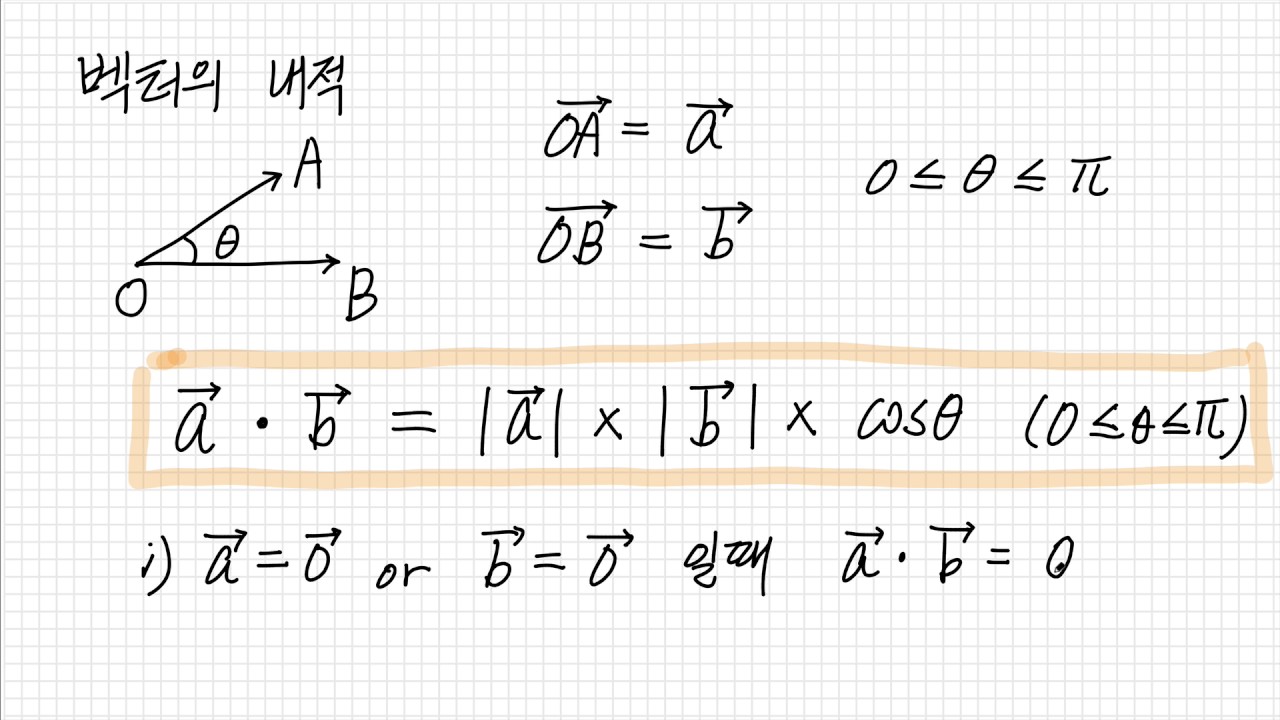 벡터의 내적
A
θ
O
B
OA→ = a→
OB→ = b→
0 ≤ θ ≤ π
a→ · b→ = |a→| × |b→| × cosθ (0≤θ≤π)
i) a→ = 0→ or b→ = 0→ 일때 a→ · b→ = 0